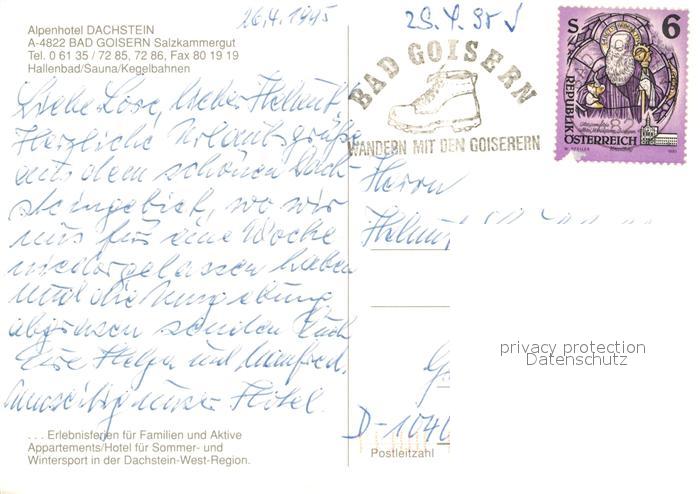 26.4.1995
29.4.95
Alpenhotel DACHSTEIN
A-4822 BAD GOISERN Salzkammergut
Tel. 0 61 35 / 72 85, 72 86, Fax 80 19 19
Hallenbad/Sauna/Kegelbahnen
Liebe Löse, lieber Helmut
Herzliche Urlaubsgrüße
aus dem schönen Dach-
steingebiet, wo wir
uns für eine Woche
niedergelassen haben
und die Umgebung
abgrasen senden Euch
Eure Helga und Manfred.
Umseitig unser Hotel.
. . . Erlebnisferien für Familien und Aktive
Appartements/Hotel für Sommer- und
Wintersport in der Dachstein-West-Region.
BAD GOISERN
WANDERN MIT DEN GOISERERN
S 6
REPUBLIK
ÖSTERREICH
Herrn
Helmut
D-104
Postleitzahl
privacy protection
Datenschutz